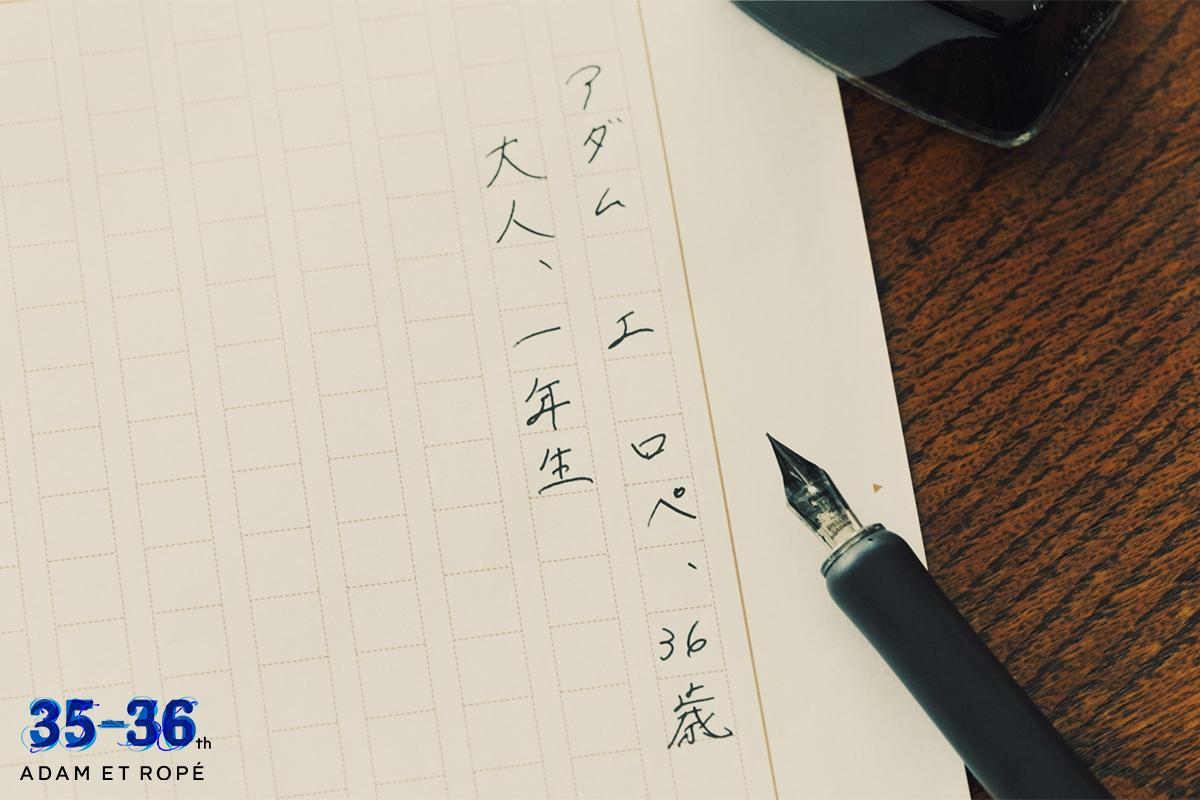 アダム エ ロペ、36歳
大人、一年生
35-36th
ADAM ET ROPÉ